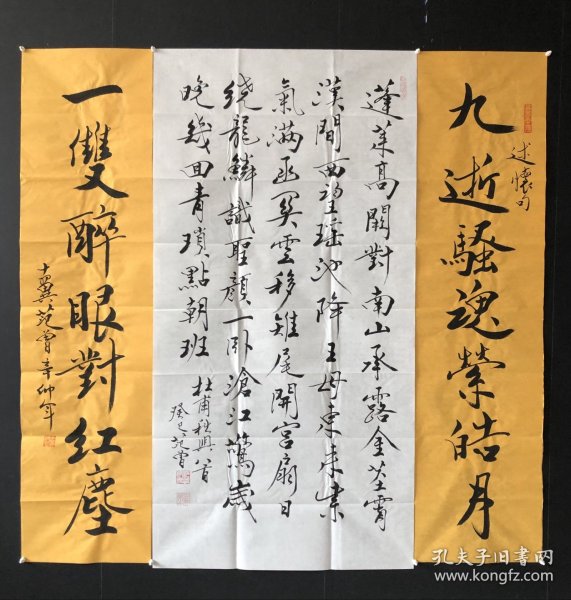 述懷句
九逝騷魂縈皓月
蓬萊高闕對南山承露金莖霄
漢間西望瑤池降王母東來紫
氣滿函関雲移雉尾開宮扇日
繞龍鱗識聖顏一卧滄江驚歲
晚幾回青瑣點朝班
杜甫秋興八首
癸巳范曾
一雙醉眼對紅塵
十翼范曾辛卯年
孔夫子旧书网
www.kongfz.com